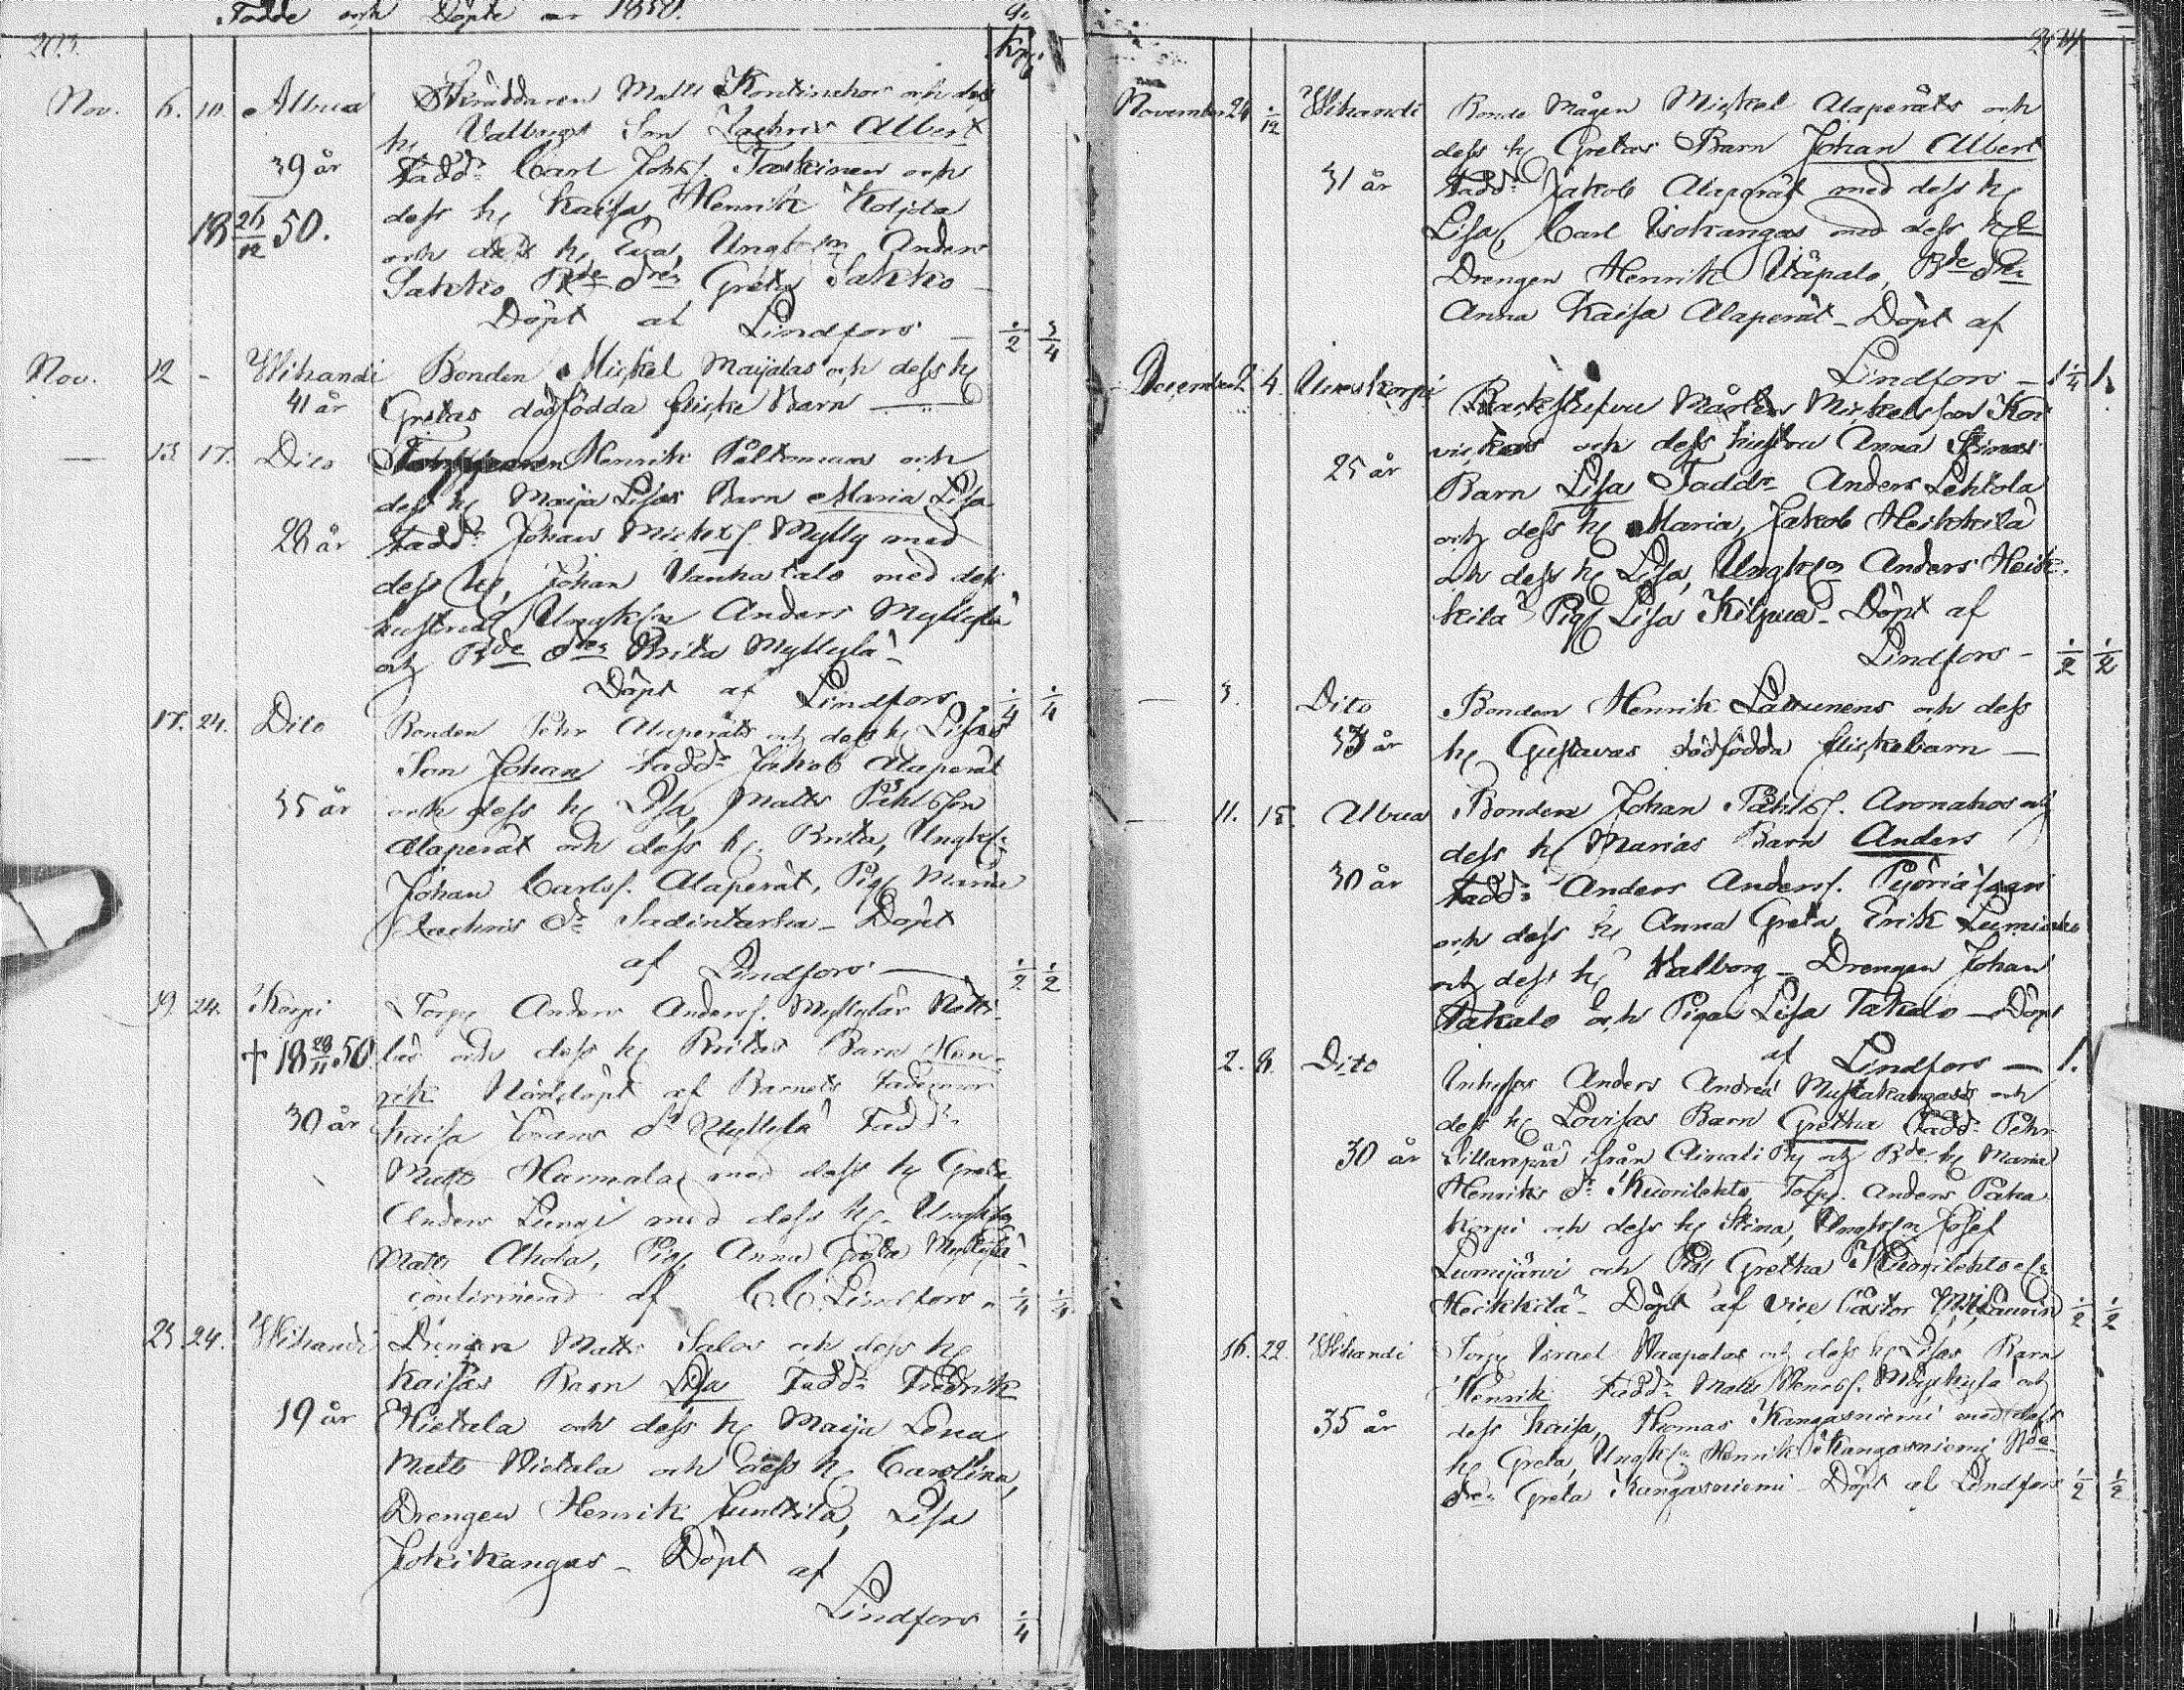 Födde och Döpte år 1850.
203.
Nov. 6. 10. Albua Skräddaren Matts Kontinahos och dess
hu Valborgs Son Zachris Albert
39 år Fadd: Carl Johss. Taskinen och
dess hu Kaisa, Henrik Kotjota
18 26/12 50. och dess hu Eva, Ungkon Anders
Sakko Bde Dr Greta Sakko
Döpt af Lindfors 1/2 3/4
Nov. 12 - Wihandi Bonden Mickel Maijalas och dess hu
41 år Gretas dödfödda flicke Barn
— 13 17. Dito Henrik Påltomaas och
dess hu Maija Lisas Barn Maria Lisa
28 år Fadd: Johan Mickels. Mylly med
dess hu, Johan Vanhatalo med dess
hustru Ungkon Anders Myllylä
och Bde Dr Brita Myllylä
Döpt af Lindfors 1/4 1/4
17. 24. Dito Bonden Pehr Alaperäts och dess hu Lisas
Son Johan Fadd: Jakob Alaperät
35 år och dess hu Lisa, Matts Påhlsson
Alaperät och dess hu Brita, Ungk:
Johan Carls. Alaperät, Pig Maria
Zachris Dr Sadintarha - Döpt
af Lindfors 1/2 1/2
19. 24. Korpi Torp Anders Anders. Myllylär
+ 18 29/11 50. och dess hu Britas Barn Hen-
rik Nöddöpt af Barnets Fadermor
30 år Kaisa Dr Myllylä Fadd:
Matts Harmala med dess hu Greta
Anders Lungi med dess hu Ungkon
Matts Ahola, Pig Anna Greta Myllylä
confirmerad af C. C. Lindfors 1/4 1/4
23 24. Wihandi Matts Salos och dess hu
Kaisas Barn Lisa Fadd: Fredrik
19 år Hietala och dess hu Maija Lena
Matts Hietala och dess hu Carolina,
Drengen Henrik Junttila, Lisa
Jokikangas - Döpt af
Lindfors 1/4
204
November 24 1/12 Wihandi Bonde Mågen Mickel Alaperäts och
dess hu Gretas Barn Johan Albert
31 år Fadd: Jakob Alaperät med dess hu
Lisa, Carl Isokangas med dess hu
Drengen Henrik Wäpalo, Bde Dr
Anna Kaisa Alaperät - Döpt af
Lindfors - 1 1/4 1.
December 2. 4. Mårten Mickelsson Kor
och dess hustru Anna Stinas
25 år Barn Lisa Fadd: Anders Lehtola
och dess hu Maria, Jakob Heikkilä
och dess hu Lisa, Ungkon Anders Heik-
kilä Pig Lisa Kilpua - Döpt af
Lindfors - 1/2 1/2
— 3. Dito Bonden Henrik Latunens och dess
hu Gustavas dödfödda flickebarn —
— 11. 15. Albua Bonden Johan Påhls. Aronahos och
dess hu Marias Barn Anders
30 år Fadd: Anders Anders.
och dess hu Anna Greta, Erik
och dess hu Walborg - Drengen Johan
Takalo och Pigan Lisa Takalo - Döpt
af Lindfors — 1.
2. 8. Dito Inhyses Anders Andreæ Mustakangass och
dess hu Lovisas Barn Gretha Fadd: Pehr
30 år Sillanpää ifrån och Bde hu Maria
Henriks Dr Kuonilehto, Torp. Anders Paka
korpi och dess hu Stina, Ungkon Josef
Lumijärvi och Pig Gretha Kuonilehto el:
Heikkilä - Döpt af Vice Pastor Laurin 1/2 1/2
16. 22. Wihandi Torp Israel Waapalos och dess hu Lisas Barn
Henrik Fadd: Matts Henrs. och
35 år dess Kaisa, Thomas Kangasniemi med dess
hu Greta, Ungkon Henrik Kangasniemi Bde
Dr Greta Kangasniemi - Döpt af Lindfors 1/2 1/2